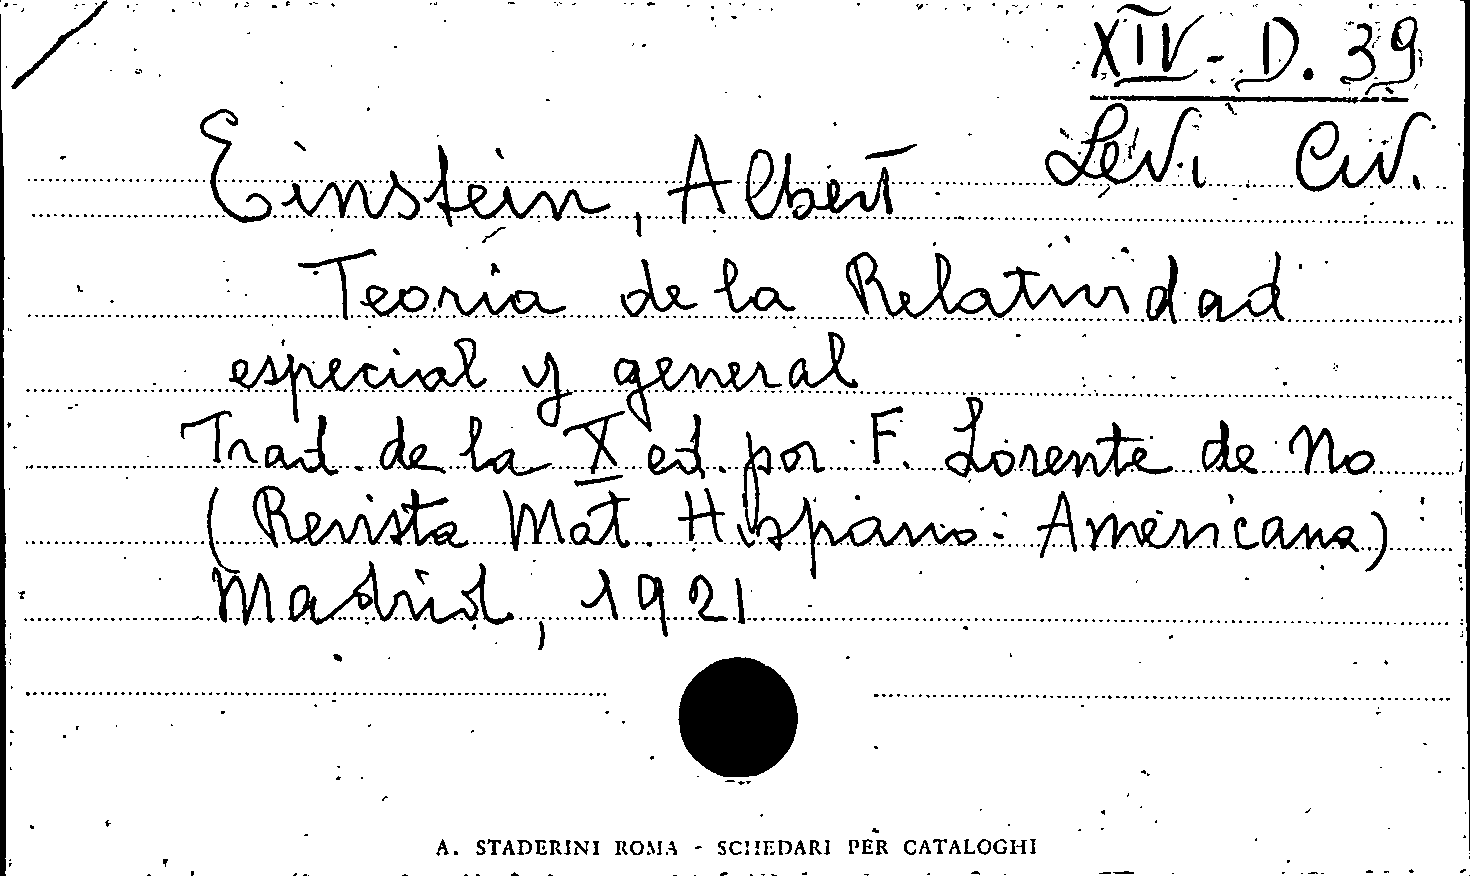 XIV - D. 39
Levi Civ.
Einstein, Albert
Teoria de la Relatividad
especial y general
Trad. de la X ed. por F. Lorente de No
(Revista Mat. Hispano-Americana)
Madrid, 1921
A. STADERINI ROMA - SCHEDARI PER CATALOGHI